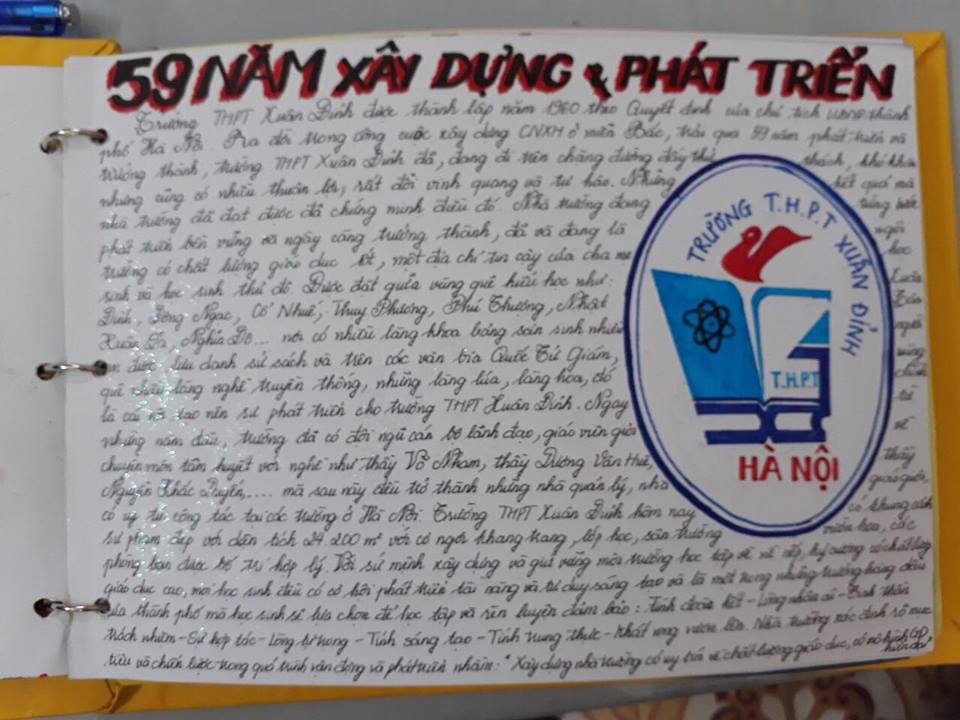 59 NĂM XÂY DỰNG & PHÁT TRIỂN
Trường THPT Xuân Đỉnh được thành lập năm 1960 theo Quyết định của chủ tịch UBND thành
phố Hà Nội. Ra đời trong công cuộc xây dựng CNXH ở miền Bắc, trải qua 59 năm phát triển và
trưởng thành, trường THPT Xuân Đỉnh đã, đang đi trên chặng đường đầy thử thách, khó khăn
nhưng cũng có nhiều thuận lợi, rất đỗi vinh quang và tự hào. Những kết quả mà
nhà trường đã đạt được đã chứng minh điều đó. Nhà trường đang từng bước
phát triển bền vững và ngày càng trưởng thành, đã và đang là ngôi
trường có chất lượng giáo dục tốt, một địa chỉ tin cậy của cha mẹ học
sinh và học sinh thủ đô. Được đặt giữa vùng quê hiếu học như: Xuân
Đỉnh, Đông Ngạc, Cổ Nhuế, Thụy Phương, Phú Thượng, Nhật Tân
Xuân La, Nghĩa Đô... nơi có nhiều làng khoa bảng sản sinh nhiều người
được lưu danh sử sách và trên các văn bia Quốc Tử Giám, vùng
quê nhiều làng nghề truyền thống, những làng lúa, làng hoa, đó chính
là cái nôi tạo nên sự phát triển cho trường THPT Xuân Đỉnh. Ngay từ
những năm đầu, trường đã có đội ngũ cán bộ lãnh đạo, giáo viên giỏi về
chuyên môn tâm huyết với nghề như thầy Võ Nham, thầy Dương Văn Huề, thầy
Nguyễn Khắc Duyến,.... mà sau này đều trở thành những nhà quản lý, nhà giáo giỏi,
có uy tín công tác tại các trường ở Hà Nội. Trường THPT Xuân Đỉnh hôm nay có khung cảnh
sư phạm đẹp với diện tích 24.200 m² với cơ ngơi khang trang, lớp học, sân trường vườn hoa, các
phòng ban được bố trí hợp lý. Với sứ mệnh xây dựng và giữ vững môi trường học tập về nề nếp, kỷ cương có chất lượng
giáo dục cao, mọi học sinh đều có cơ hội phát triển tài năng và tư duy sáng tạo và là một trong những trường hàng đầu
của thành phố mà học sinh sẽ lựa chọn để học tập và rèn luyện đảm bảo: Tình đoàn kết - Lòng nhân ái - Tinh thần
trách nhiệm - Sự hợp tác - Lòng tự trọng - Tính sáng tạo - Tính trung thực - Khát vọng vươn lên. Nhà trường xác định rõ mục
tiêu và chiến lược trong quá trình vận động và phát triển nhằm: "Xây dựng nhà trường có uy tín về chất lượng giáo dục, có mô hình GD
hiện đại"
TRƯỜNG T.H.P.T XUÂN ĐỈNH
T.H.P.T
HÀ NỘI